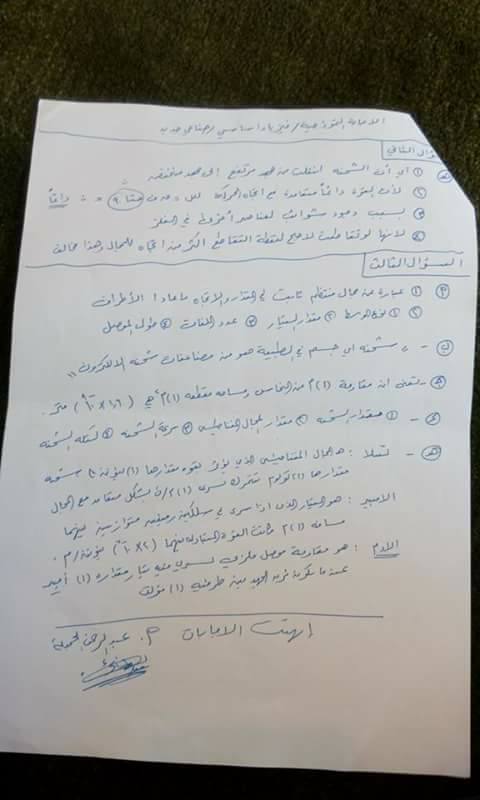 الاجابة النموذجية / فيزياء اساسي رضا في جدب
السؤال الثاني
١ اي أن الشحنه انتقلت من جهد مرتفع الى جهد منخفض
٢ لأن القوة دائماً متعامدة مع اتجاه الحركة جتا ٩٠ = ٠ دائماً
٣ بسبب وجود شوائب لعناصر أخرى في الفلز
٤ لأنها لو تقاطعت لأصبح لنقطة التقاطع اكثر من اتجاه للمجال وهذا مخالف
السؤال الثالث
٢ ١ عبارة عن مجال منتظم ثابت في المقدار والاتجاه ما عدا الأطراف
٢ ١ نوع الوسط ٢ مقدار التيار ٣ عدد اللفات ٤ طول الموصل
ب - " شحنه اي جسم في الطبيعة هو من مضاعفات شحنه الالكترون "
يعني ان مقاومة (١) م من النحاس ومساحه مقطعه (١) م٢ هي
- ١ مقدار الشحنه ٢ مقدار المجال المغناطيسي ٣ سرعة الشحنه ٤ كتلة الشحنه
تسلا : هو المجال المغناطيسي الذي يؤثر بقوه مقدارها (١) نيوتن على شحنه
مقدارها (١) كولوم تتحرك بسرعة (١) م/ث بشكل متعامد مع المجال
الامبير : هو التيار الذي اذا سرى في سلكين رفيعين متوازيين بينهما
مسافه (١) م كانت القوة المتبادله بينهما نيوتن/م .
الاوم : هو مقاومة موصل فلزي يسري فيه تيار مقداره (١) أمبير
عندما يكون فرق الجهد بين طرفيه (١) فولت
انتهت الاجابات م. عبدالرحمن